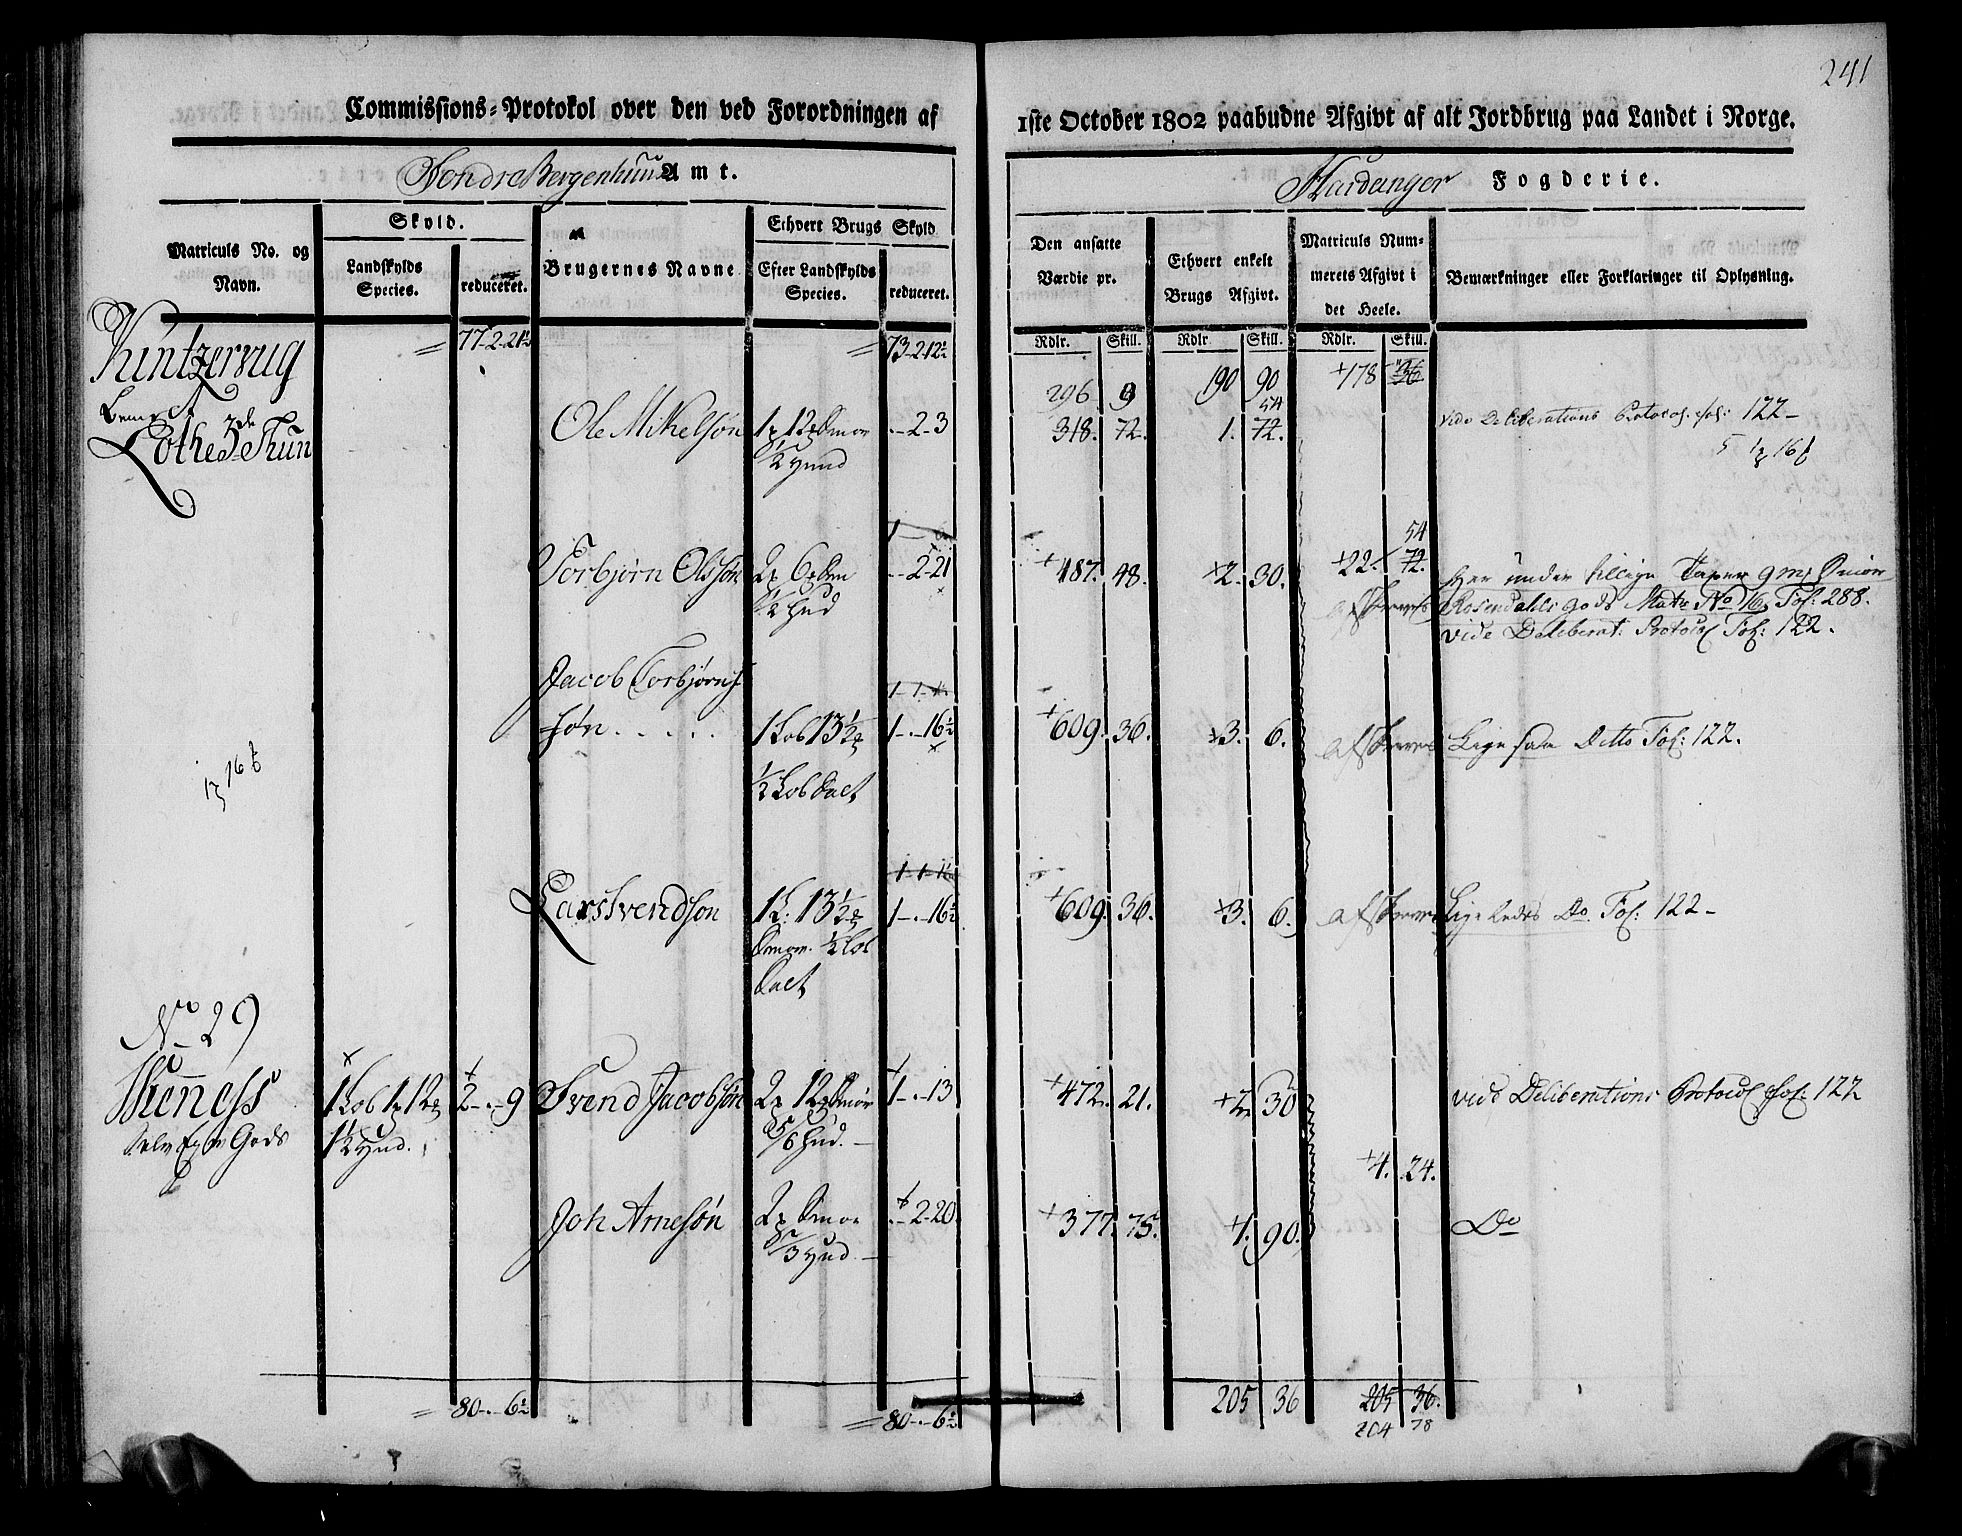 241
Commissions-Protokol over den ved Forordningen af 1ste October 1802 paabudne Afgivt af alt Jordbrug paa Landet i Norge.
Søndre Bergenhuus Amt.
Hardanger Fogderie.
Matriculs No. og Navn.
Skyld.
Landskylds Species.
reduceret.
Brugernes Navne
Ethvert Brugs Skyld
Efter Landskylds Species.
reduceret.
Den ansatte Værdie pr.
Ethvert enkelt Brugs Afgivt.
Matriculs Nummerets Afgivt i det Heele.
Bemærkninger eller Forklaringer til Oplysning.
Rdlr. Skill. Rdlr Skill. Rdlr. Skill.
77-2-21½ 73-2-12½
296 9 190 90 +178
54
Lothe 3de Thun Ole Mikelsøn 1 12 Smør -2-3 318. 72. 1. 72. vide Deliberations Protocol fol: 122-
½ Hund
5 16
54
Torbjørn Olssøn 2 6 -2-21 +487. 48. +2. 30. +22. 72. Her under tillige
½ Hud
Rosendahls gods Matr No 16, Fol: 288.
vide Deliberat: Protocol Fol: 122.
Jacob Torbjørns
søn 1 Lob 13½ 1-.-16½ +609. 36. +3. 6. Lige saa Ditto Fol: 122.
16
½ Lob Salt
Lars Svendsøn 1 L: 13½ 1-.-16½ +609. 36. +3. 6. Ligeledes Do. Fol: 122-
Smør. ½ Lob
Salt
No 29
1 Lob 1 12 2-.-9 Svend Jacobsøn 2 12 Smør 1-.-13 +472. 21. +2. 30 vide Deliberations Protocol fol: 122
Gods 5/6 Hud.
+4. 24.
Joh Arnesøn 2 Smør -2-20 +377. 75. +1. 90. Do
/3 Hud
80-.-6½ 80-.-6½ 205 36 205 36.
204 78